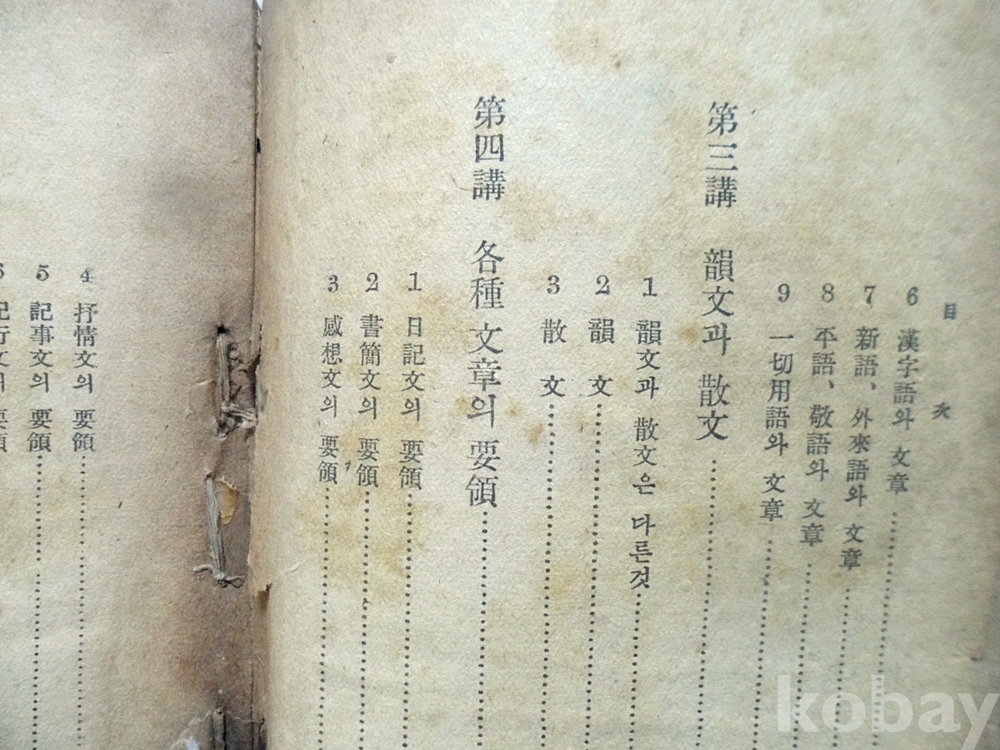 目次
6 漢字語와 文章
7 新語、外來語와 文章
8 平語、敬語와 文章
9 一切用語와 文章
第三講 韻文과 散文
1 韻文과 散文은 다른것
2 韻文
3 散文
第四講 各種 文章의 要領
1 日記文의 要領
2 書簡文의 要領
3 感想文의 要領
4 抒情文의 要領
5 記事文의 要領
6 紀行文의 要領
kobay